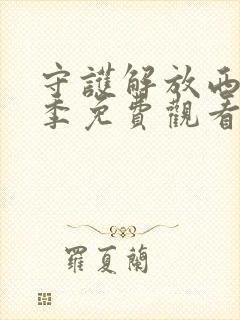 守護解放西
季免費觀看
羅夏蘭